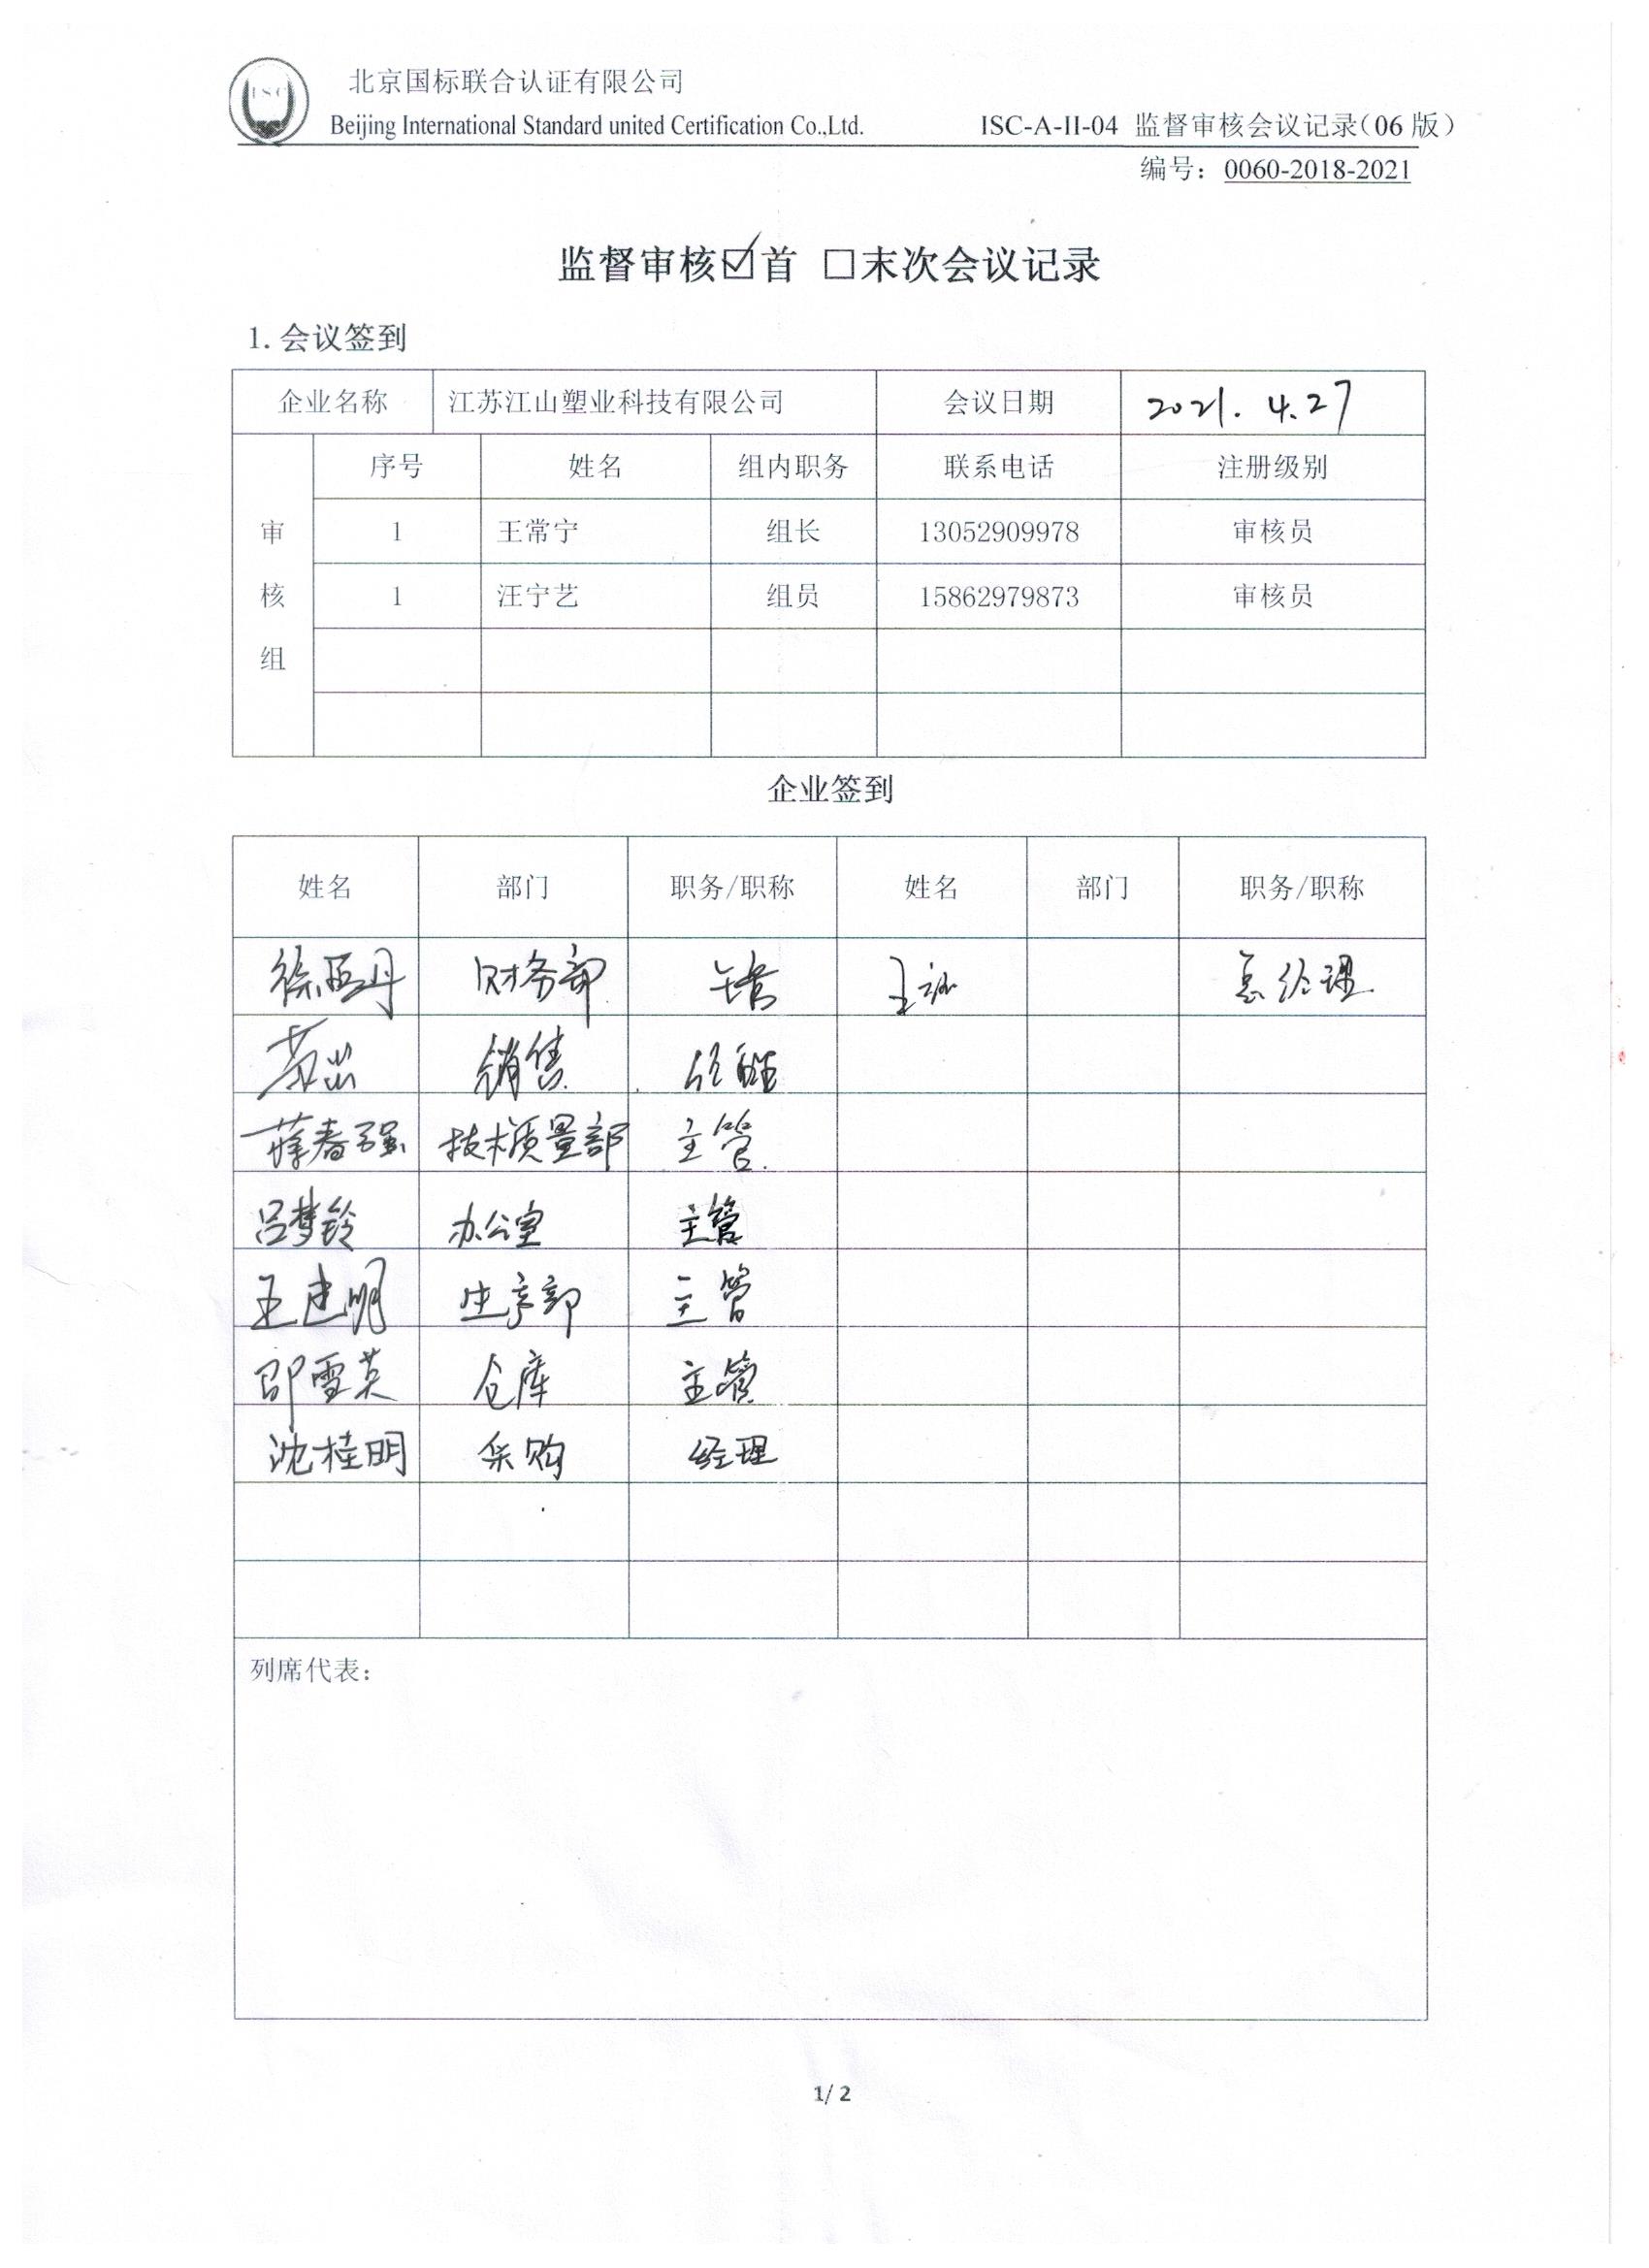 ISC
北京国标联合认证有限公司
Beijing International Standard united Certification Co.,Ltd.
ISC-A-II-04 监督审核会议记录(06 版)
编号：0060-2018-2021
监督审核☑首 □末次会议记录
1.会议签到
企业名称 江苏江山塑业科技有限公司 会议日期 2021.4.27
审核组
序号 姓名 组内职务 联系电话 注册级别
1 王常宁 组长 13052909978 审核员
1 汪宁艺 组员 15862979873 审核员
企业签到
姓名 部门 职务/职称 姓名 部门 职务/职称
财务部 总经理
销售 经理
技术质量部 主管
吕梦铃 办公室 主管
王建明 生产部 主管
邵雪英 仓库 主管
沈桂明 采购 经理
列席代表：
1/ 2